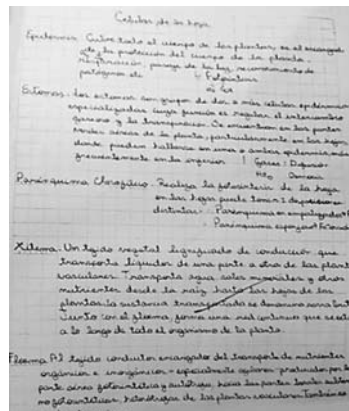 Celulas de la hoja
Epidermis. Cubre todo el cuerpo de las plantas, es el encargado
de la protección del cuerpo de la planta.
respiración, pasaje de la luz, reconocimiento de
patógenos etc
Estomas. los estomas son grupos de dos o más células epidérmicas
especializadas cuya función es regular el intercambio
gaseoso y la transpiración. Se encuentran en las partes
verdes aéreas de la planta, particularmente en las hojas,
donde pueden hallarse en una o ambas epidermis, más
frecuentemente en la inferior Gases: Difusión
H2O Osmosis
Parénquima Clorofílico. Realiza la fotosíntesis de la hoja
en las hojas puede tomar 2 disposiciones
distintas: . Parénquima en empalizada
. Parénquima esponjoso
Xilema. Un tejido vegetal lignificado de conducción que
transporta líquidos de una parte a otra de las plantas
vasculares. Transporta agua, sales minerales y otros
nutrientes desde la raíz hasta las hojas de las
plantas. la sustancia transportada se denomina savia
Junto con el floema, forma una red continua que se
a lo largo de todo el organismo de la planta.
Floema Al tejido conductor encargado del transporte de nutrientes
orgánicos e inorgánicos - especialmente azúcares - producidos por la
parte aérea fotosintética y autótrofa, hacia las partes basales
no fotosintéticas, heterótrofas de las plantas vasculares. También es